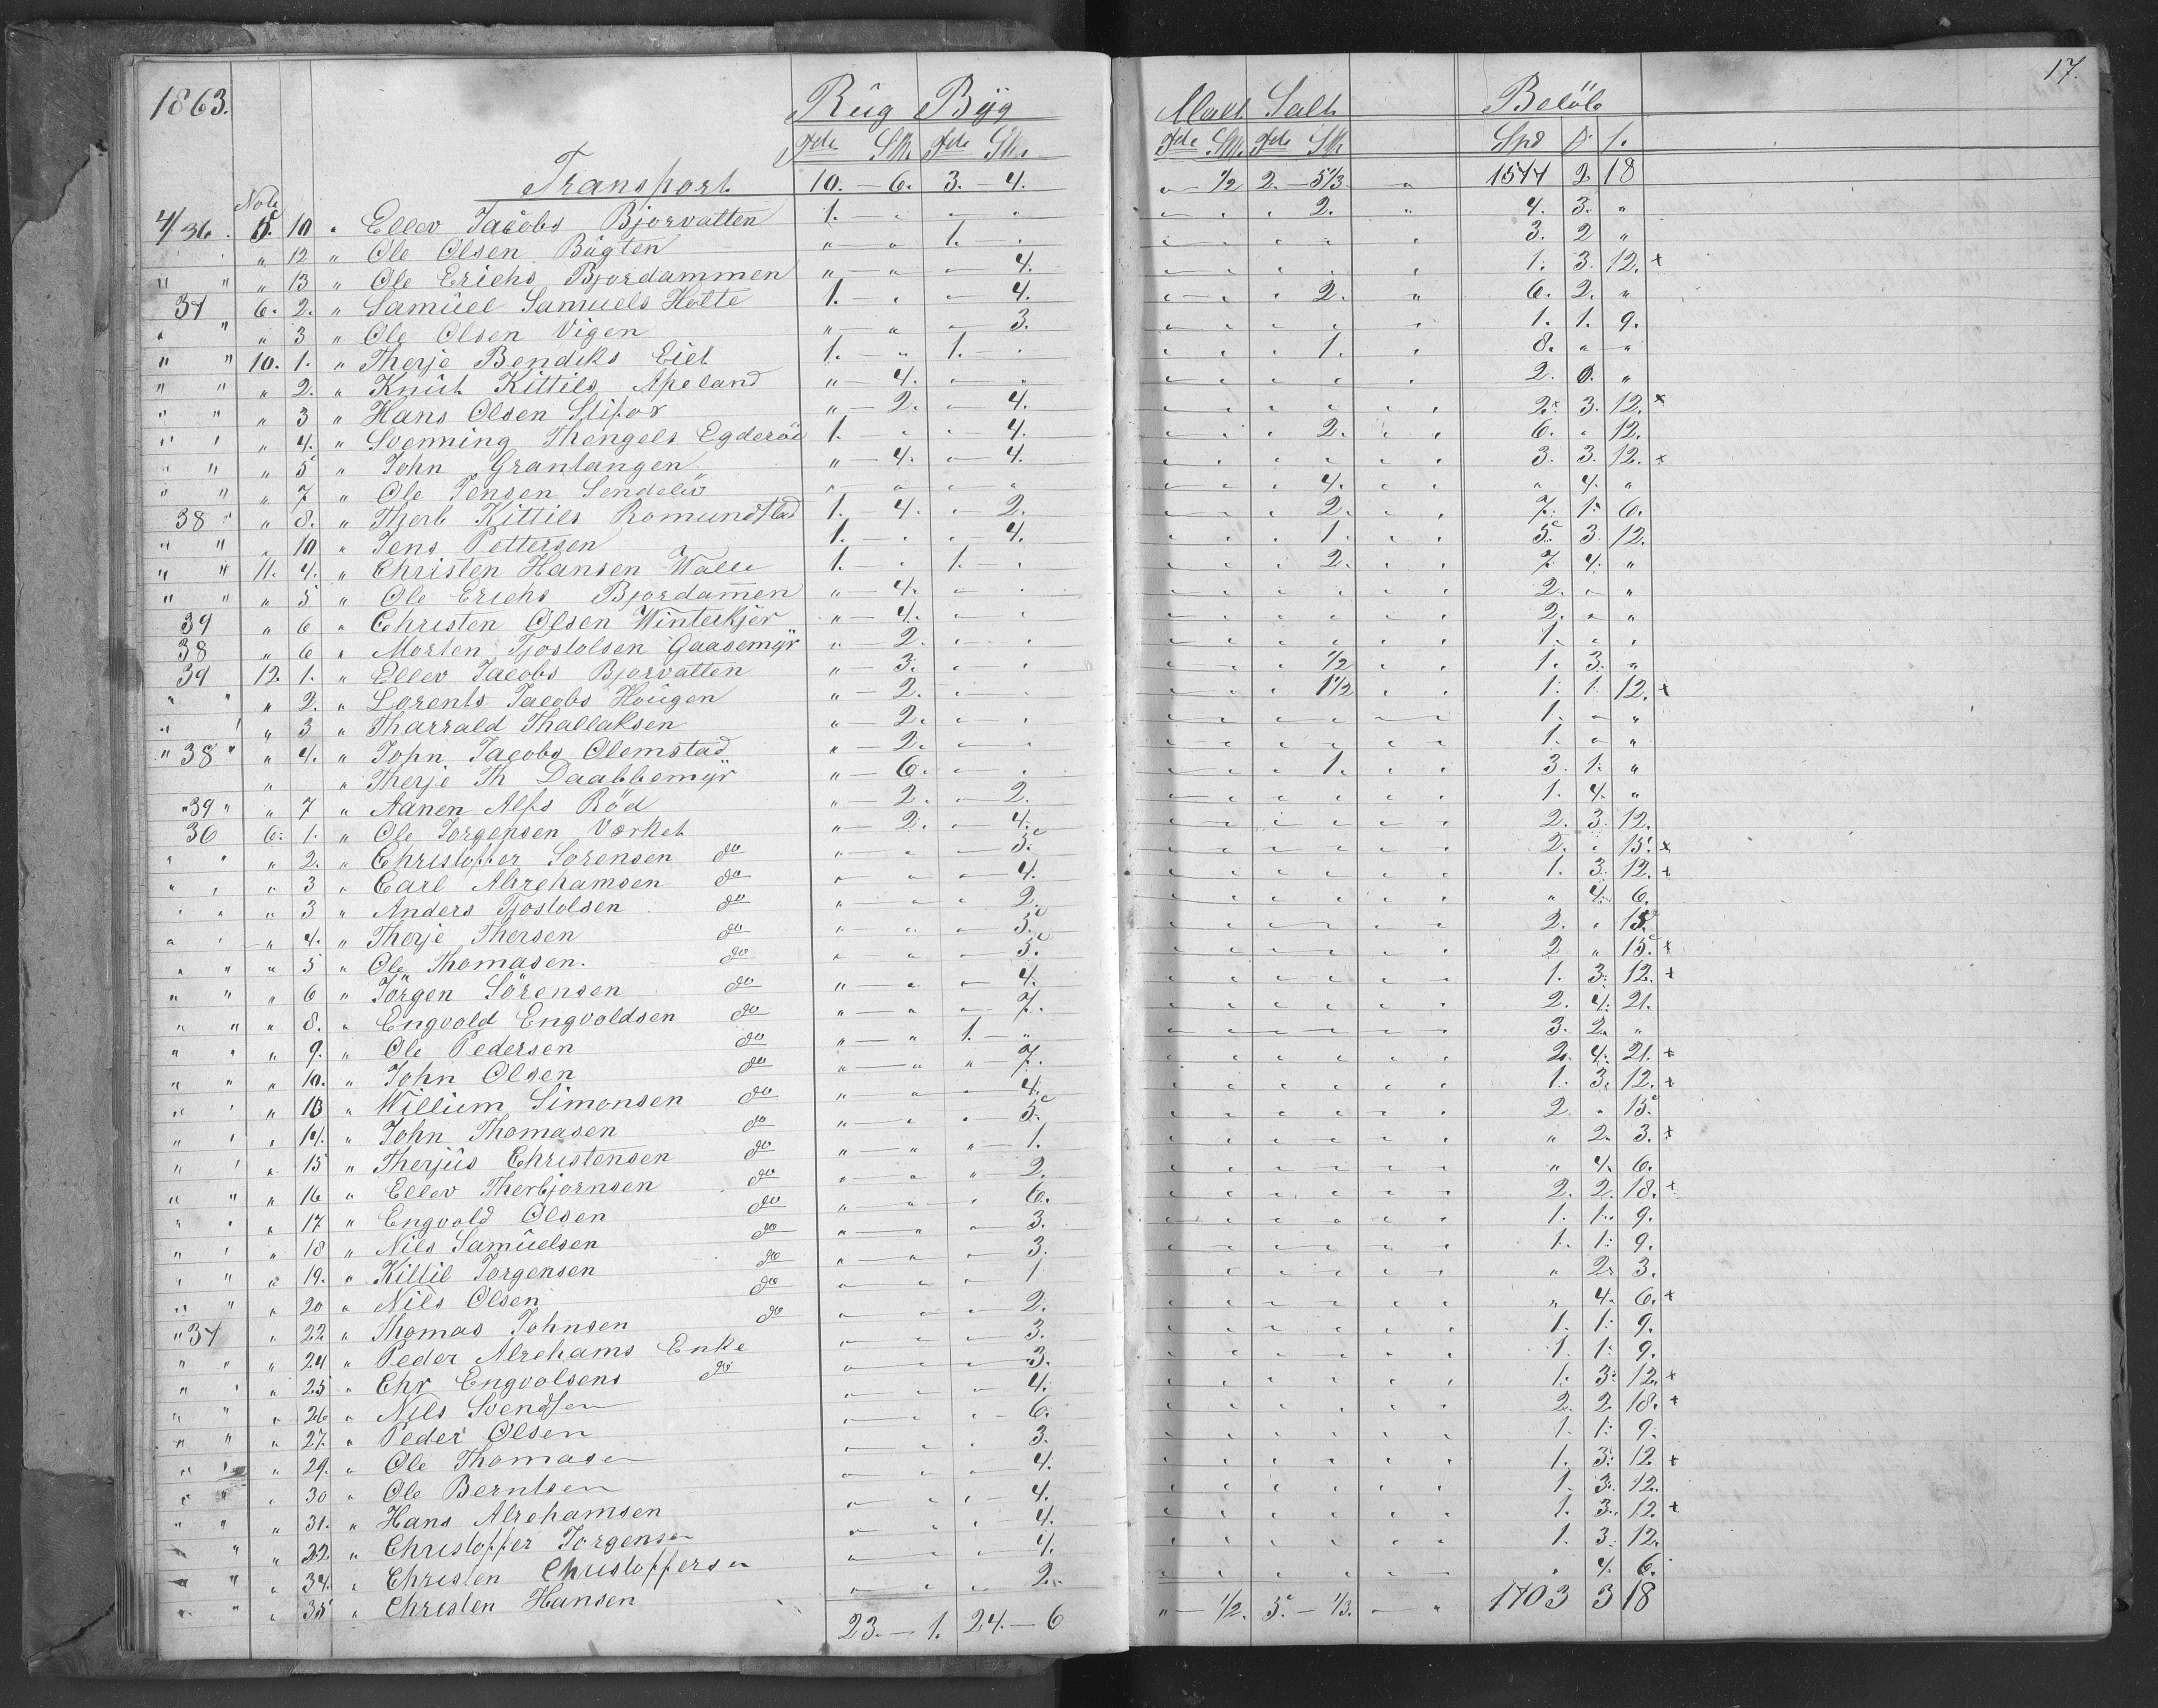 17.
1863. Rüg Byg Malt Salt Beløb
Tdr Skr Tdr Skr Tdr Skr Tdr Skr Spd
Transport 10. — 6. 3. — 4. " — 1/2 2. — 5 1/3 — " 1544 2. 18
Note
4/36. 5. 10 " Ellev Jacobs Bjorvatten 1. " " " " " " 2. " 4. 3. "
" 12 " Ole Olsen Bügten " " 1. — " " " " " " 3. 2 "
" " " 13 " Ole Erichs Bjordammen " — " — 4. " " " " " 1. 3. 12. x
37 6. 2. " Samüel Samuels Holte 1. " — 4. " " " 2. " 6. 2. "
" " " 3 " Ole Olsen Vigen " — " — 3. " " " " " 1. 1. 9.
" " 10. 1. " Therje Bendiks Eiet 1. " 1. — " " " " 1. " 8. " "
" " " 2. " Knüt Kittils Apeland " — 4. " " " " " " " 2. 0. "
" " " 3 " Hans Olsen Slifor " — 2. — 4. " " " " " 2. 3. 12. x
" " " 4. " Svenning Thengels Egderöe 1. " " — 4. " " " 2. " 6. " 12.
" " " 5 " John Granlangen " — 4. — 4. " " " " " 3. 3. 12. x
" " " 7 " Ole Jensen Sendeløv " " " " " " " 4. " " 4. "
38 " " 8. " Therb Kittils Romundstad 1. — 4. " 2. " " " 2. " 7. 1. 6.
" " " 10 " Jens Pettersen 1. " " 4. " " " 1. " 5. 3. 12.
" " 11. 4. " Christen Hansen Walle 1. " 1. — " " " " 2. " 7 4. "
" " " 5 " Ole Erichs Bjordam̅en " — 4. — " " " " " " 2. " "
39 " 6 " Christen Olsen Winterkjer " — 4. " " " " " " " 2. " "
38 " 6 " Morten Tjostolsen Gaasemyr " — 2. " " " " " " " 1. " "
39 12. 1. " Ellev Jacobs Bjorvatten " — 3. " " " " " 1/2 " 1. 3. "
" " " 2. " Lorents Jacobs Hougen " — 2. — " " " " 1 1/2 " 1. 1. 12. x
" " " 3 " Tharrald Thallaksen " — 2. " " " " " " " 1. " "
" 38 " " 4. " John Jacobs Olemstad " — 2. " " " " " " " 1. " "
" " Therje Th Daabbemyr " — 6. " " " " " 1. " 3. 1. "
" 39 " " 7 " Aanen Alfs Röd " — 2. — 2. " " " " " 1. 4. "
36 6. 1. " Ole Jorgensen Værket " — 2. — 4. " " " " " 2. 3. 12.
" " " 2. " Christoffer Sorensen do " " — 5. " " " " " 2. " 15. x
" " " 3 " Carl Abrehamsen do " " " 4. " " " " " 1. 3. 12. x
" " " 3 " Anders Tjostolsen do " " " 2. " " " " " " 4. 6.
" " " 4. " Therje Thersen do " " " 5. " " " " " 2. " 15.
" " " 5 " Ole Thomasen. do " " " 5. " " " " " 2 " 15. x
" " " 6 " Jörgen Sörensen do " " " 4. " " " " " 1. 3. 12. x
" " " 8. " Engvold Engvoldsen do " " " 7. " " " " " 2. 4. 21.
" " " 9. " Ole Pedersen do " " 1. " " " " " " 3. 2. "
" " " 10. " John Olsen do " " " 7. " " " " " 2. 4. 21. x
" " " 13 " Willium Simonsen do " " " 4. " " " " " 1. 3. 12. x
" " " 14. " John Thomasen do " " " 5. " " " " " 2 " 15.
" " " 15 " Therjüs Christensen do " " " 1. " " " " " " 2. 3. x
" " " 16 " Ellev Therbjornsen do " " " 2. " " " " " " 4. 6.
" " " 17 " Engvold Olsen do " " " 6. " " " " " 2. 2. 18. x
" " " 18 " Nils Samüelsen do " " " 3. " " " " " 1. 1. 9.
" " " 19. " Kittil Jorgensen do " " " 3. " " " " " 1. 1. 9.
" " " 20 " Nils Olsen do " " " 1 " " " " " " 2. 3.
" 37 " 22 " Thomas Johnsen do " " " 2. " " " " " " 4. 6. x
" " " 24 " Peder Abrehams Enke " " " 3. " " " " " 1. 1. 9.
" " " 25 " Chr Engvolsens do " " " 3. " " " " " 1. 1. 9.
" " " 26 " Nils Svendsen " " " 4. " " " " " 1. 3. 12. x
" " " 27. " Peder Olsen " " " 6. " " " " " 2. 2 18. x
" " " 29. " Ole Thomasen " " " 3. " " " " " 1. 1. 9.
" " " 30 " Ole Berntsen " " " 4. " " " " " 1. 3. 12 x
" " " 31. " Hans Abrehamsen " " " 4. " " " " " 1. 3. 12.
" " " 32. " Christoffer Jorgensen " " " 4. " " " " " 1. 3. 12 x
" " " 34. " Christen Christoffersen " " " 4. " " " " " 1. 3. 12.
" " " 35 " Christen Hansen " " " 2. " " " " " " 4. 6.
23. — 1. 24. — 6 " — 1/2. 5. — 1/3. — " 1703 3 18